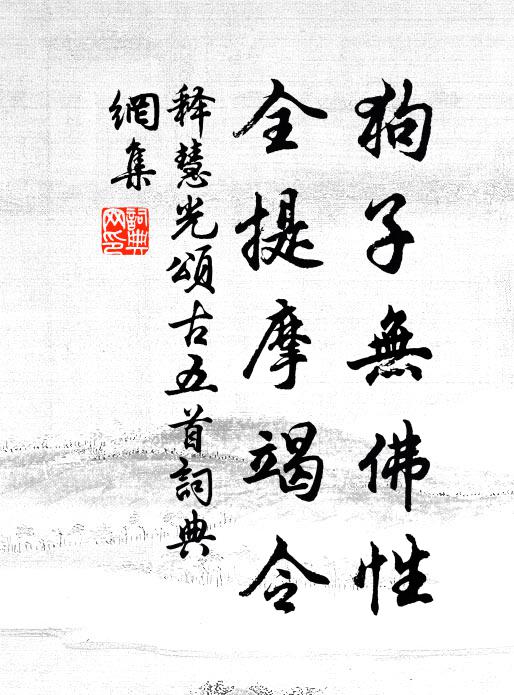 狗子無佛性
全提摩竭令
释慧光頌古五首詞典
網集
詞典
网印